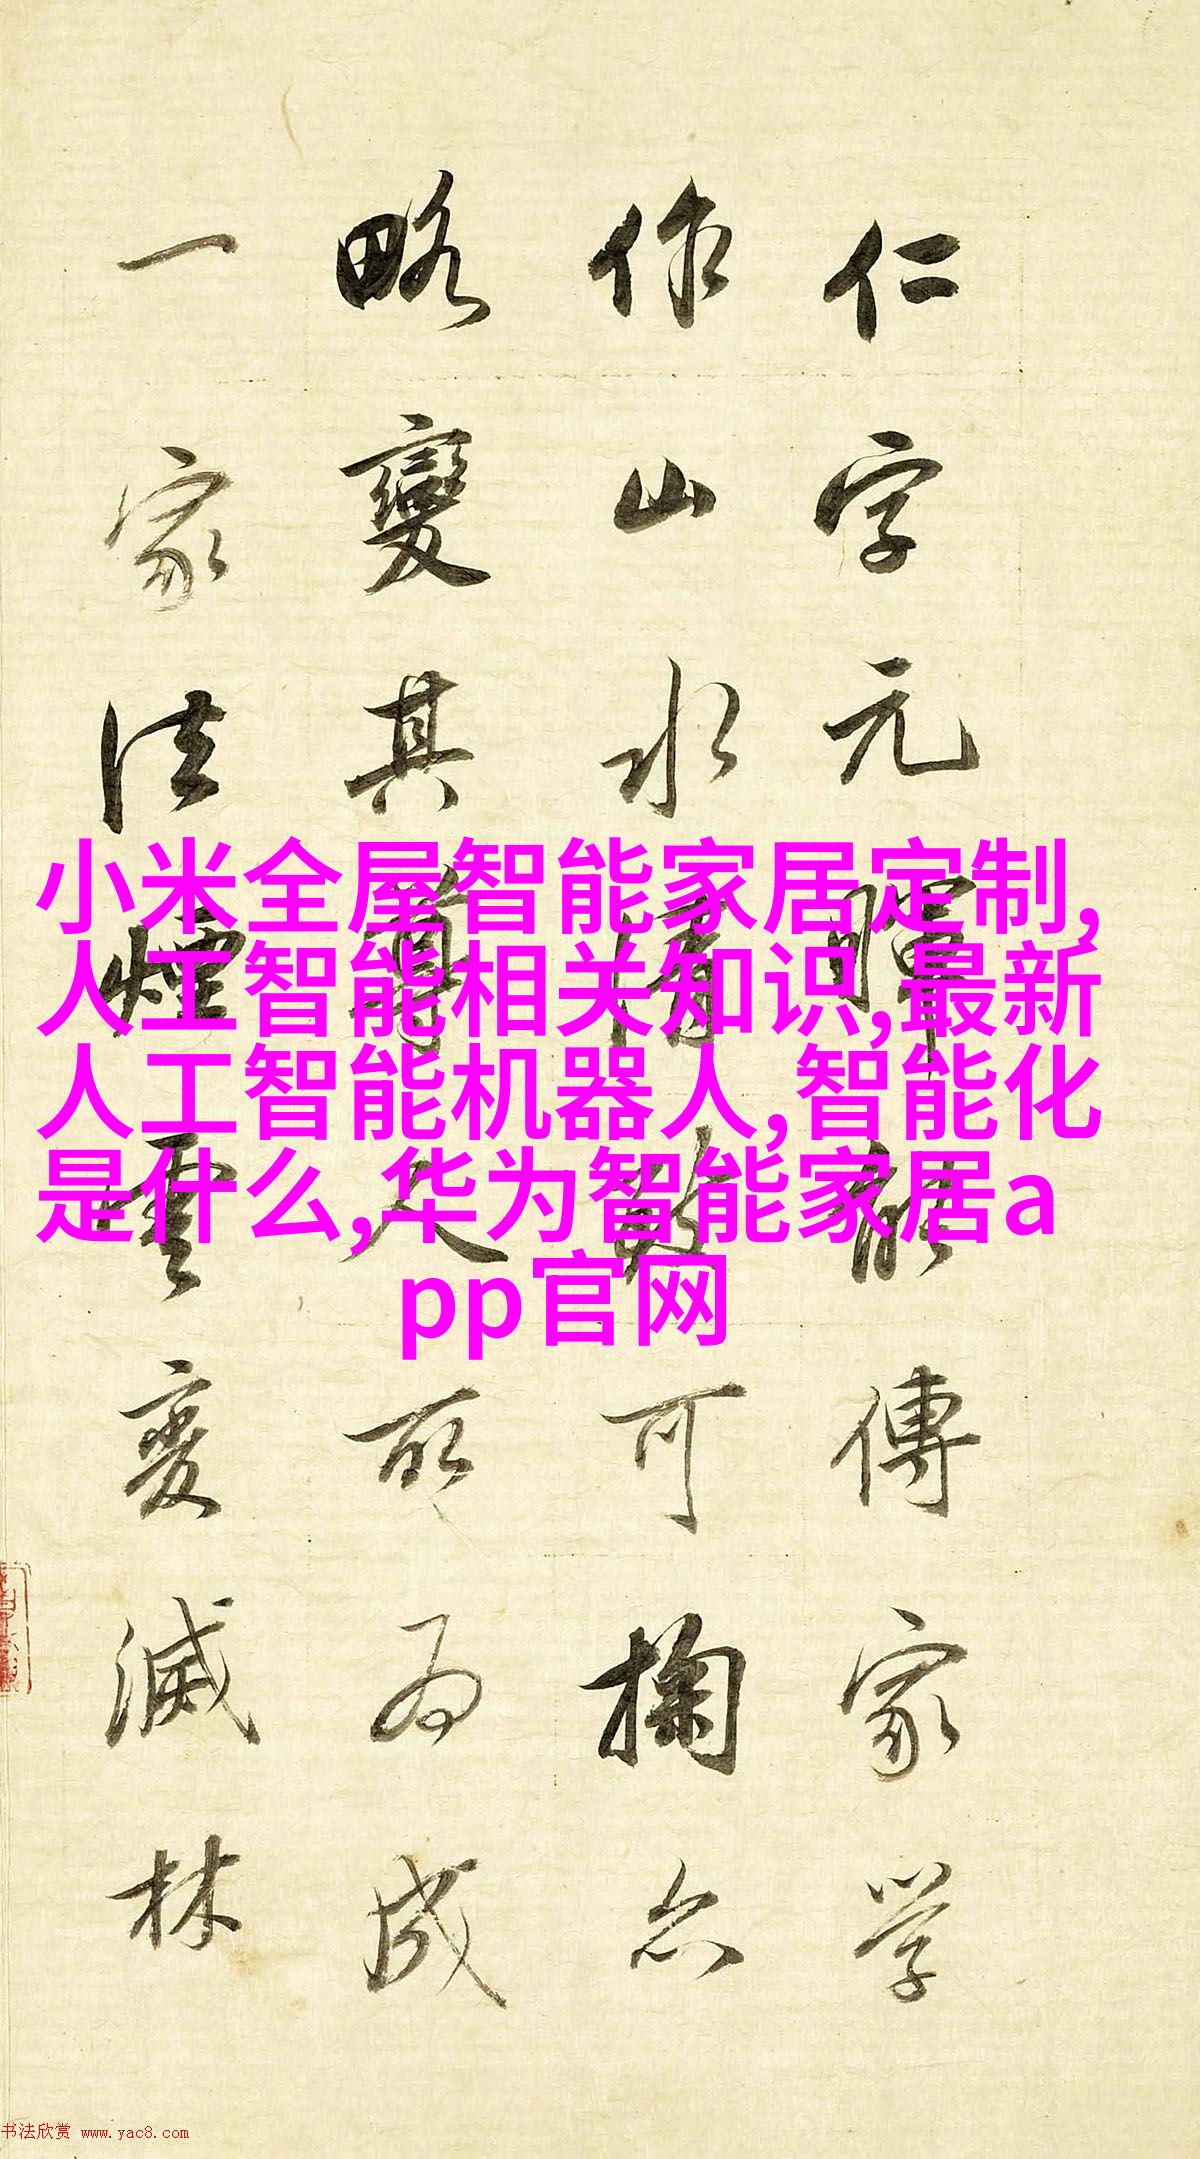 仁字元暉能傳家學
作山水清致可掬亦
略變其尊人所為成
一家法煙雲變滅林
小米全屋智能家居定制,
人工智能相关知识,最新
人工智能机器人,智能化
是什么,华为智能家居a
pp官网
书法欣赏 www.yac8.com